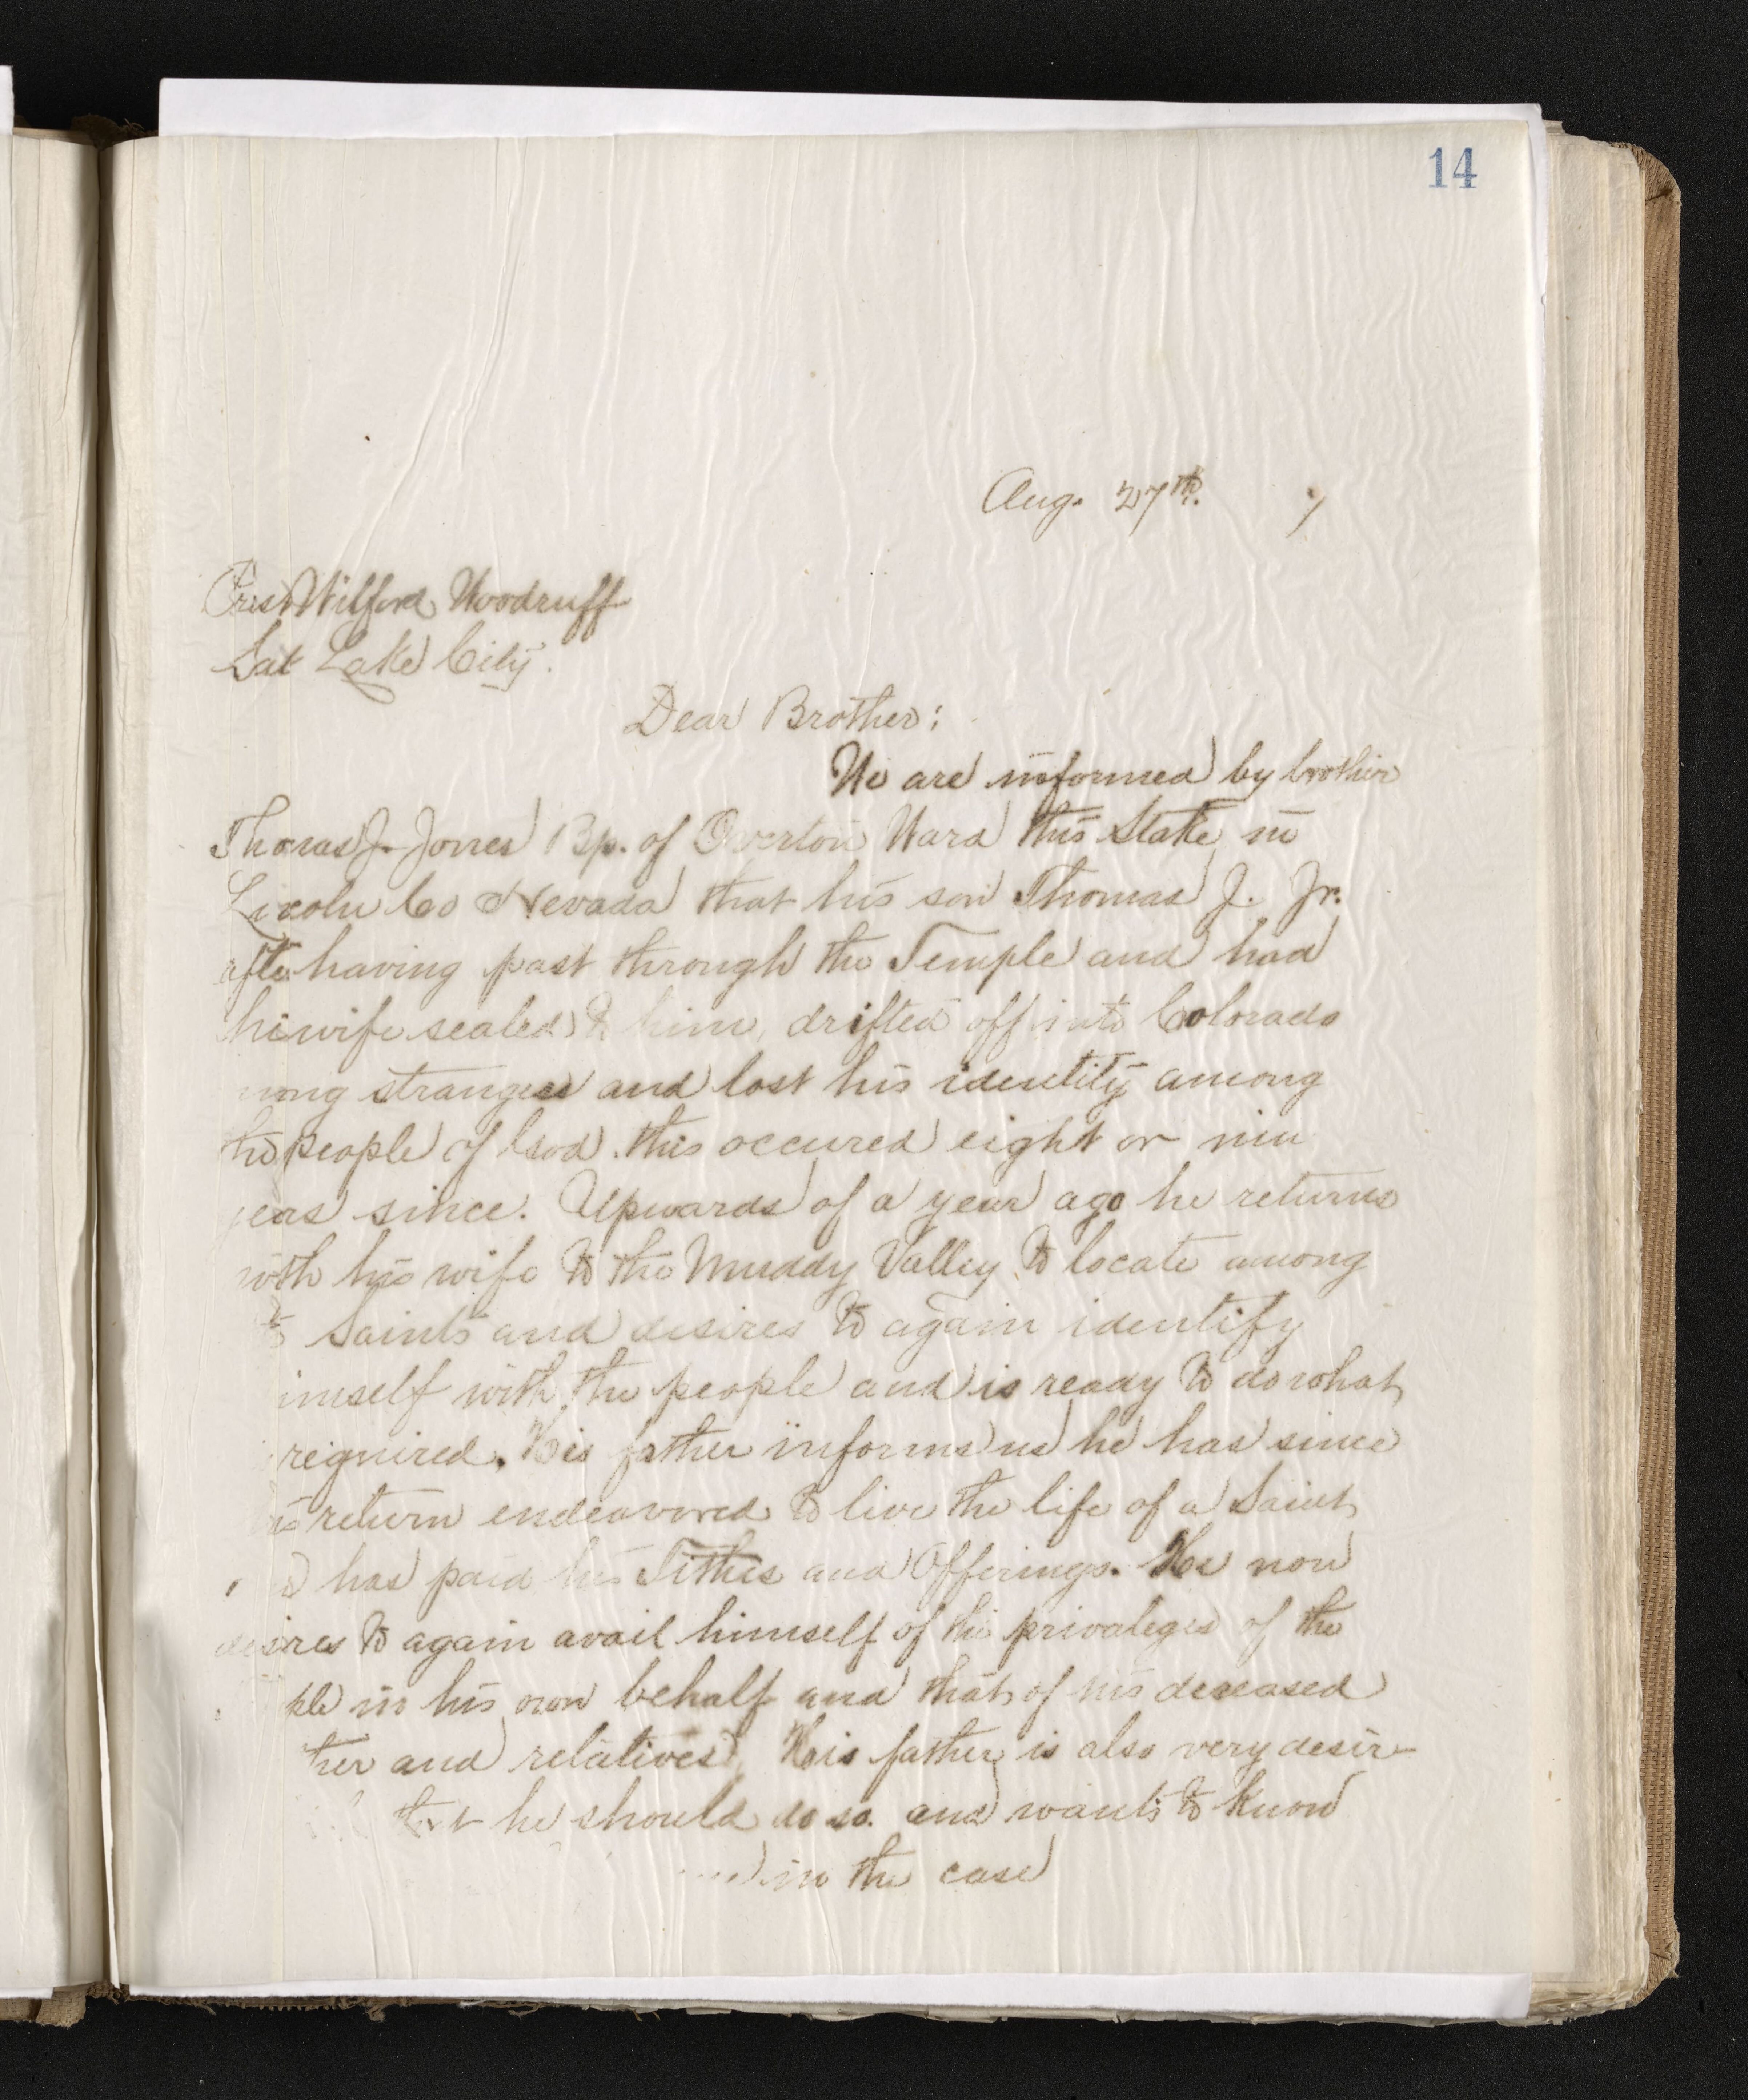 14
Aug. 27th. 7
Pres Wilford Woodruff
Salt Lake City.
Dear Brother:
We are informed by brother
Thomas J. Jones Bp. of Overton Ward this Stake in
Lincoln Co Nevada that his son Thomas J. Jr.
after having past through the Temple and had
his wife sealed to him, drifted off into Colorado
mong strangers and lost his identity among
the people of God. this occured eight or nine
years since. Upwards of a year ago he returns
with his wife to the Muddy Valley to locate among
Saints and desires to again identify
imself with the people and is ready to do what
required. His father informs us he has since
his return endeavored to live the life of a Saint
has paid his Tithes and Offerings. He now
desires to again avail himself of the privaleges of the
ple in his own behalf and that of his deseased
ther and relatives. His father is also very desir-
that he should do so. and wants to know
in the case